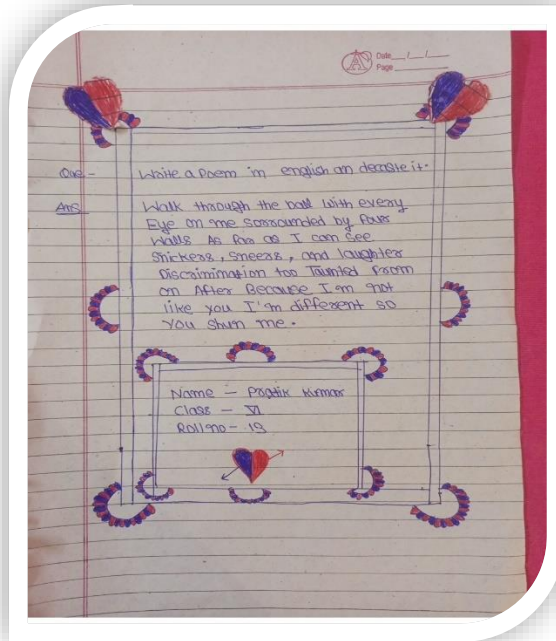 Date __/__/__
Page
Que - Write a Poem in english an decoste it.
Ans Walk through the ball with every
Eye on me sorrounded by four
Walls As far as I can see
Snickers, sneers, and laughter
Discrimination too Taunted from
on After Because I'm not
like you I'm different so
you shun me.
Name - Pratik Kumar
Class - VI
Roll no - 19